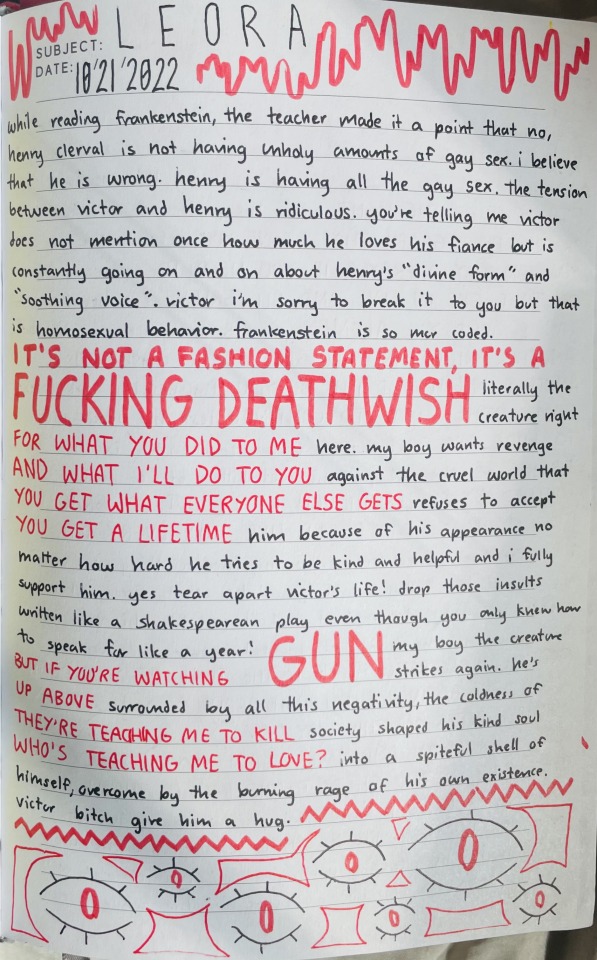 LEORA
SUBJECT:
DATE: 10/21/2022
while reading frankenstein, the teacher made it a point that no,
henry clerval is not having unholy amounts of gay sex. i believe
that he is wrong. henry is having all the gay sex. the tension
between victor and henry is ridiculous. you're telling me victor
does not mention once how much he loves his fiance but is
constantly going on and on about henry's "divine form" and
"soothing voice". victor i'm sorry to break it to you but that
is homosexual behavior. frankenstein is so mcr coded.
IT'S NOT A FASHION STATEMENT, IT'S A
FUCKING DEATHWISH literally the
creature right
FOR WHAT YOU DID TO ME here. my boy wants revenge
AND WHAT I'LL DO TO YOU against the cruel world that
YOU GET WHAT EVERYONE ELSE GETS refuses to accept
YOU GET A LIFETIME him because of his appearance no
matter how hard he tries to be kind and helpful and i fully
support him. yes tear apart victor's life! drop those insults
written like a shakespearean play even though you only knew how
to speak for like a year! GUN my boy the creature
BUT IF YOU'RE WATCHING strikes again. he's
UP ABOVE surrounded by all this negativity, the coldness of
THEY'RE TEACHING ME TO KILL society shaped his kind soul
WHO'S TEACHING ME TO LOVE? into a spiteful shell of
himself, overcome by the burning rage of his own existence.
victor bitch give him a hug.